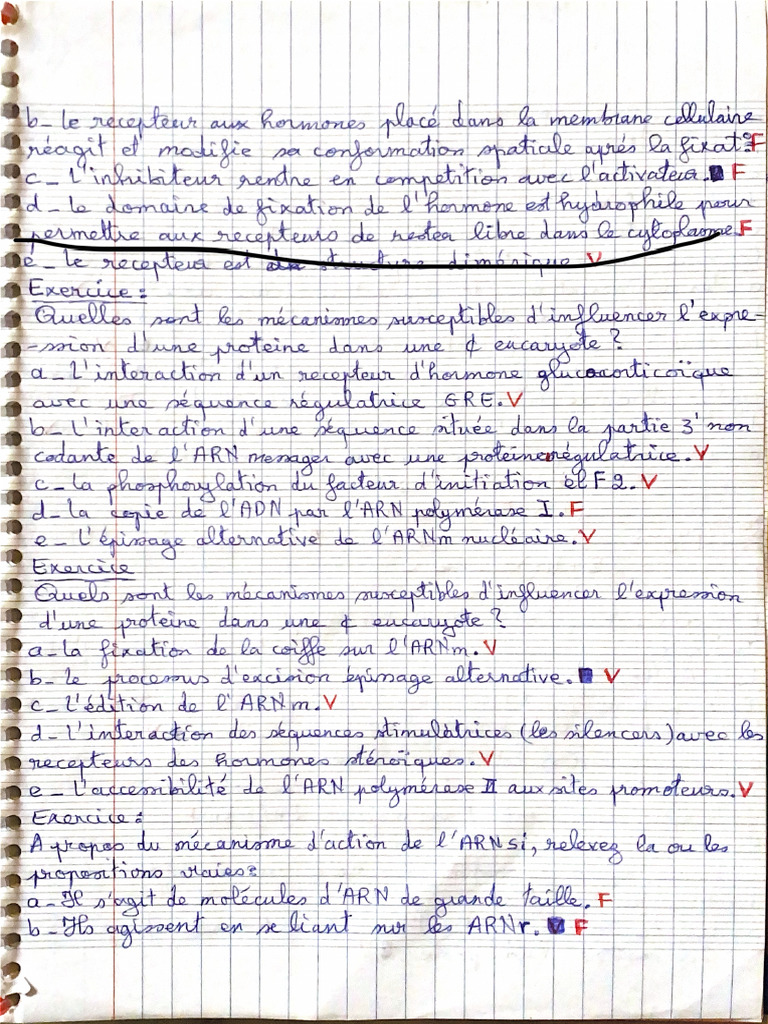 b- Le recepteur aux hormones placé dans la membrane cellulaire
réagit et modifie sa conformation spatiale aprés la fixat° F
c- L'inhibiteur rentre en competition avec l'activateur. F
d- le domaine de fixation de l'hormone est hydrophile pour
permettre aux recepteurs de rester libre dans le cytoplasme. F
e- le recepteur est structure dimérique V
Exercice :
Quelles sont les mécanismes susceptibles d'influencer l'expre-
-ssion d'une proteine dans une ¢ eucaryote ?
a- L'interaction d'un recepteur d'hormone glucocorticoïque
avec une séquence régulatrice GRE. V
b- L'interaction d'une séquence située dans la partie 3' non
codante de l'ARN messager avec une proteine régulatrice. V
c- La phosphorylation du facteur d'initiation elF2. V
d- la copie de l'ADN par l'ARN polymérase I. F
e- L'épissage alternative de l'ARNm nucléaire. V
Exercice
Quels sont les mécanismes susceptibles d'influencer l'expression
d'une proteine dans une ¢ eucaryote ?
a- la fixation de la coiffe sur l'ARNm. V
b- le processus d'excision épissage alternative. V
c- L'édition de l'ARNm. V
d- L'interaction des séquences stimulatrices (les silencers) avec les
recepteurs des hormones stéroïques. V
e- L'accessibilité de l'ARN polymérase II aux sites promoteurs. V
Exercice :
A propos du mécanisme d'action de l'ARNsi, relevez la ou les
propositions vraies :
a- Il s'agit de molécules d'ARN de grande taille. F
b- Ils agissent en se liant sur les ARNr. F